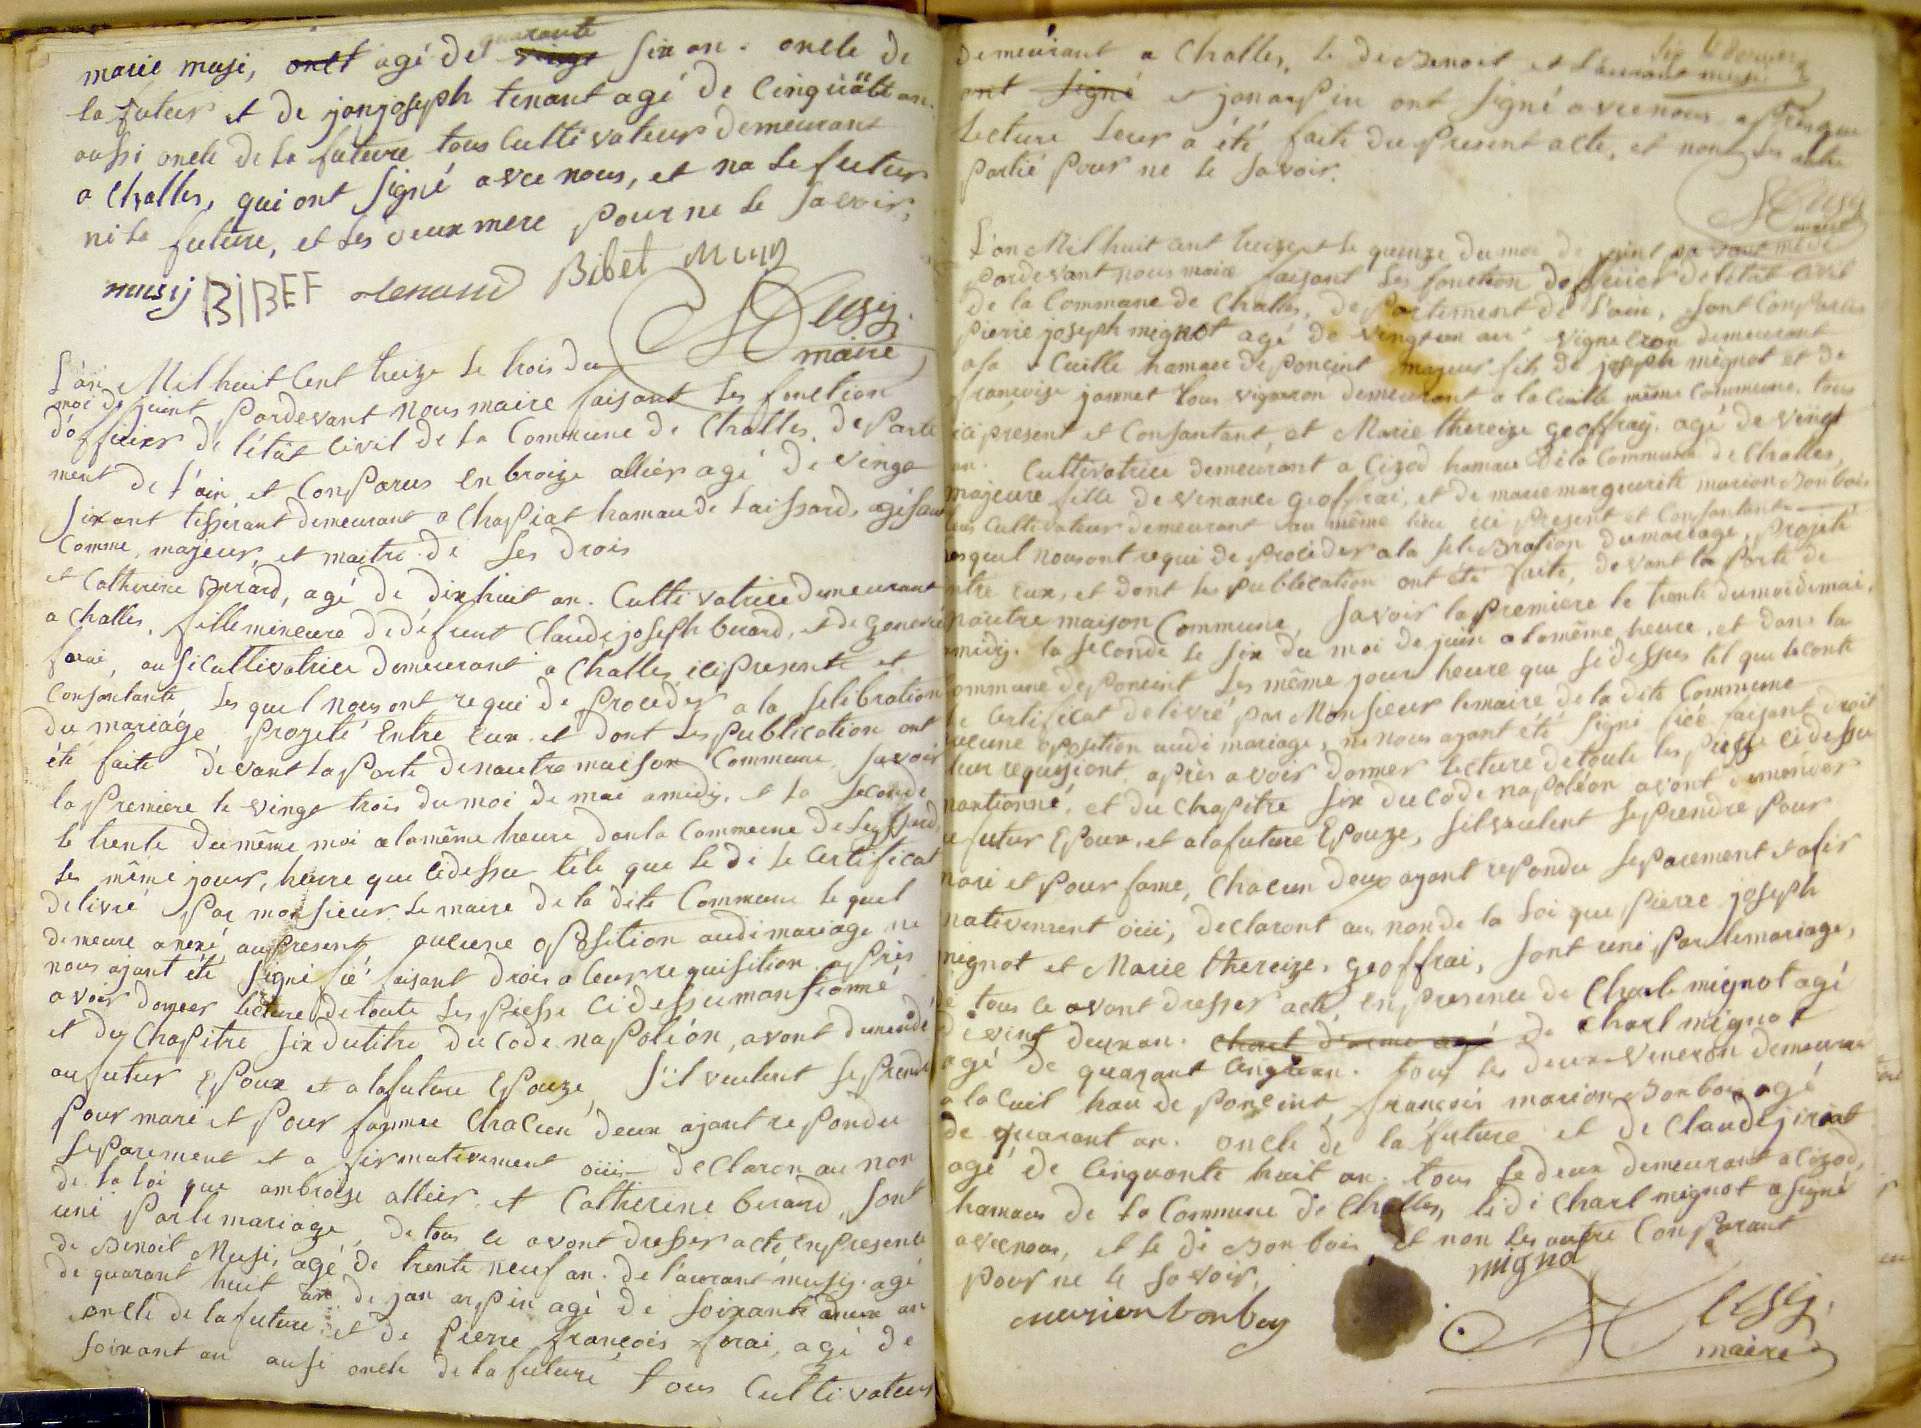 quarante
marie musi, onct agé de vingt six an. oncle de
la futeur et de janjoseph tenant agé de Cinquante an.
aussi oncle de la future tous Culti vateur demeurant
a Challes, qui ont signé avec nous, et na le futur
ni la future, et les veux mere pour ne le Savoir,
musij BIBEF Bibet musy
maire
L'an Mil huit Cent treize le trois du
moi de juint Pardevant nous maire faisant les fonction
d'officier de l'état Civil de la Commune de Challes, departe
ment de l'ain et Conparus enbroize allier agé de vingt
sixant tisserant demeurant a Chapiat hamau de Laissard agisant
Comme, majeur, et maitre de ses drois
et Catherine Berard, agé de dixhuit an. Culti vatrice demeurant
a Challes, fille mineure de défeunt Claude joseph berard, et de
forai, ausi cultivatrice demeurant a Challes ici presente et
Consantante les quel nous ont requi de proceder a la selibration
du mariage projeté entre eux et dont les publication ont
été faite devant la porte de nautre maison Commune, Savoir
la premiere le vingt trois du moi de mai amidy, et la seconde
le trente du même moi a la même heure dan la Commune de
les même jour, heure que cidessu tele que le di le Certificat
delivré par monsieur le maire de la dite Commune le quel
demeure anexé au present, aucune opsition audi mariage ne
nous ajant été signi fié faisant drois a leur requisition après
avoir donner lecture de toute les piesse cidessu mansionné
et du Chapitre six du titre du Code napoléon, avont dumendé
au futur Epoux et a la future Epouze, s'il veulent se prendre
pour mari et pour famme Chacun deux ajant repondu
separement et a firmativement oiii declaron au non
de la loi que ambroise allier et Catherine berard, sont
uni par le mariage, de tous ce avont dresser acte enpresence
de Benoit Musi, agé de trente neuf an. de laurant musy agé
de quarant huit an de jan arpin agé de soixante deux an
oncle de la future et de pierre françois forai, agé de
soixant an ausi oncle de la future tous Culti vateur
demeurant a Challes, le di Benoit et laurant musi
ont signé et jan arpin ont signé avec nous après que
Lecture leur a été faite du present acte, et non les autre
partié pour ne le savoir.
L'an Mil huit cent treize et le quinze du moi de juint
pardevant nous maire faisant les fonction dofficier de l'état Civil
de la Commune de Challes, departiment de l'ain, sont Conparus
pierre joseph mignot agé de vingt un an vigneron demeurant
a la Cuille hamau de poncint majeur fils de joseph mignot et de
françoise jannet tous vigneron demeurant a la Cuille même commune, tous
ici present et Consantant, et Marie thereize geoffray agé de vingt
an. Cultivatrice demeurant a Cizod hamau de la Commune de Challes,
majeure fille de venance geoffrai, et de marie marguerite marion Bonbois
tous Cultivateur demeurant au même lieu ici present et Consantant
les quel nous ont requi de proceder a la selebration du mariage projeté
entre eux, et dont les publication ont été faite, devant la porte de
nautre maison Commune, Savoir la premiere le trente du moi de mai,
amidy, la seconde le six du moi de juin a la même heure, et dans la
Commune de poncint les même jour heure que sidessus tel que le conte
le Certificat delivré par Monsieur le maire de la dite Commune
aucune opsition audi mariage, ne nous ayant été signi fiée faisant droit
leur requisiont après avoir donner lecture de toute les piesse cidessu
mantionné, et du Chapitre six du Code napoléon avont
le futur Epoux, et a la future Epouze, s'il veulent se prendre pour
mari et pour fame, Chacun deux ayant repondu separement et afir
mativement oiii, declaront au non de la loi que pierre joseph
mignot et Marie thereize, geoffrai, sont uni par le mariage,
de tous ce avont dresser acte, en presence de Charle mignot agé
de vingt deux an. de Charl mignot
agé de quarant Cinq an. tous les deux vineron demeurant
a la Cuil hau de poncint, françois marion Bonbois agé
de quarant an. oncle de la future et de Claude
agé de Cinquante huit an. tous le deux demeurant a Cizod,
hamau de la Commune de Challes, le di Charl mignot a signé
avec nous, et le di Bonbois et non les autre Conparant
pour ne le Savoir.
mignot
marion bonboy
maire